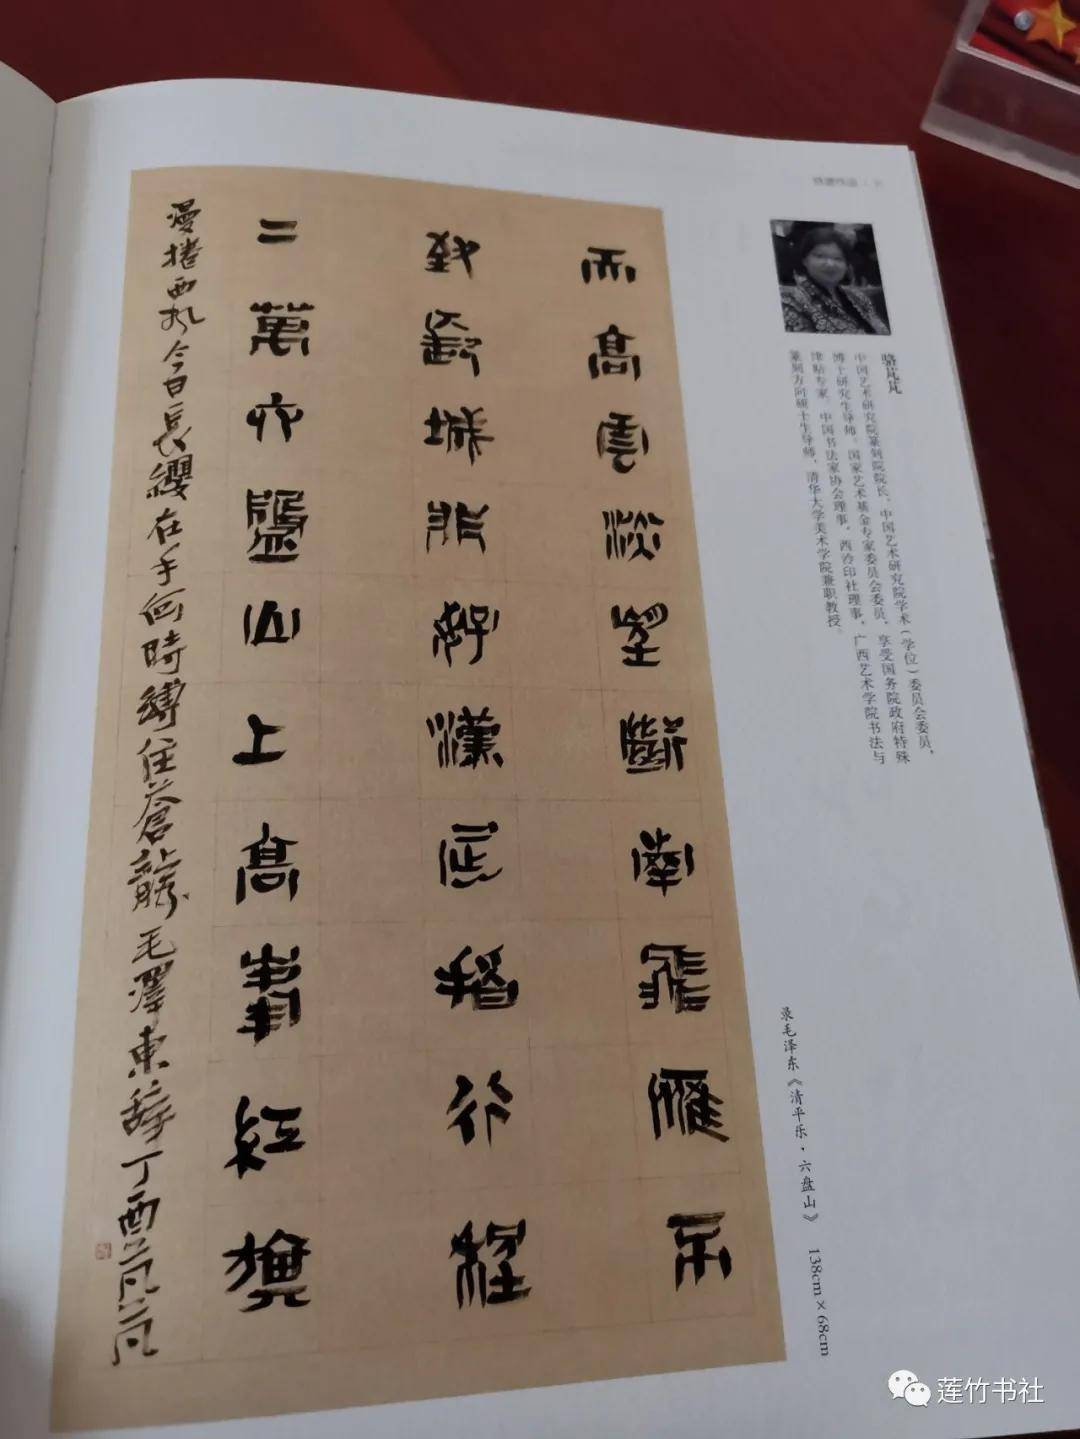 骆芃芃
中国艺术研究院篆刻院院长，中国艺术研究院学术（学位）委员会委员，
博士研究生导师，国家艺术基金专家委员会委员，享受国务院政府特殊
津贴专家，中国书法家协会理事，西泠印社理事，广西艺术学院书法与
篆刻方向硕士生导师，清华大学美术学院兼职教授。
录毛泽东《清平乐·六盘山》 138cm×68cm
天高雲淡望斷南飛雁不
到長城非好漢屈指行程
二萬六盤山上高峯紅旗
漫捲西風今日長纓在手何時縛住蒼龍毛澤東辭丁酉芃芃
莲竹书社